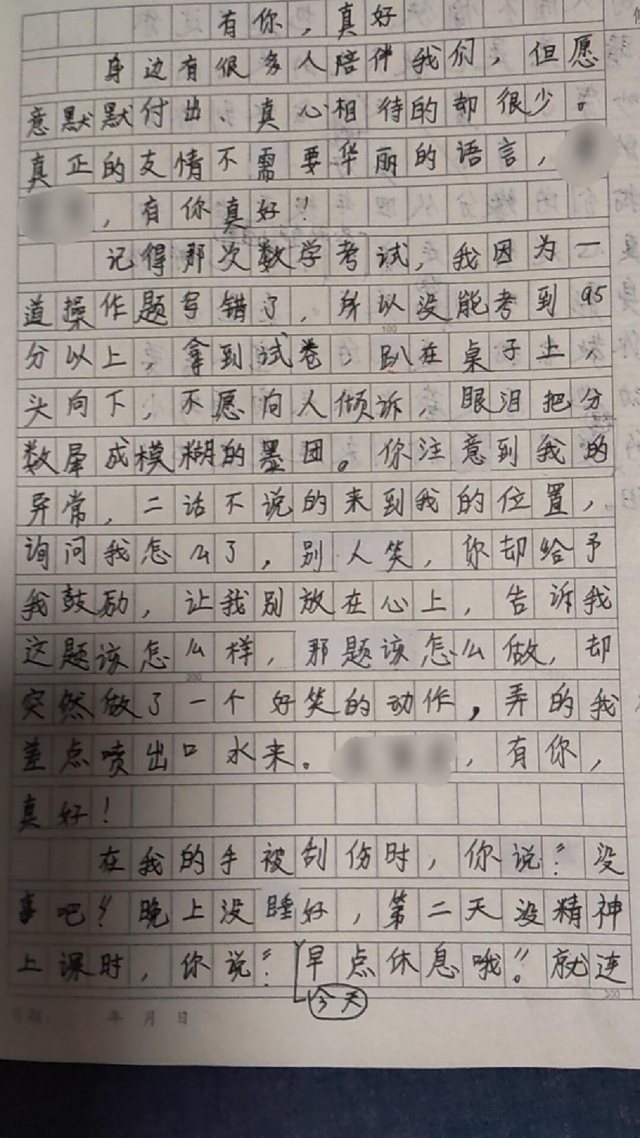 有你，真好
身边有很多人陪伴我们，但愿
意默默付出、真心相待的却很少。
真正的友情不需要华丽的语言，
，有你真好！
记得那次数学考试，我因为一
道操作题写错了，所以没能考到95
分以上，拿到试卷，趴在桌子上，
头向下，不愿向人倾诉，眼泪把分
数晕成模糊的墨团。你注意到我的
异常，二话不说的来到我的位置，
询问我怎么了，别人笑，你却给予
我鼓励，让我别放在心上，告诉我
这题该怎么样，那题该怎么做，却
突然做了一个好笑的动作，弄的我
差点喷出口水来。，有你，
真好！
在我的手被刮伤时，你说：“没
事吧”晚上没睡好，第二天没精神
上课时，你说：“早点休息哦”。就连
今天
年 月 日